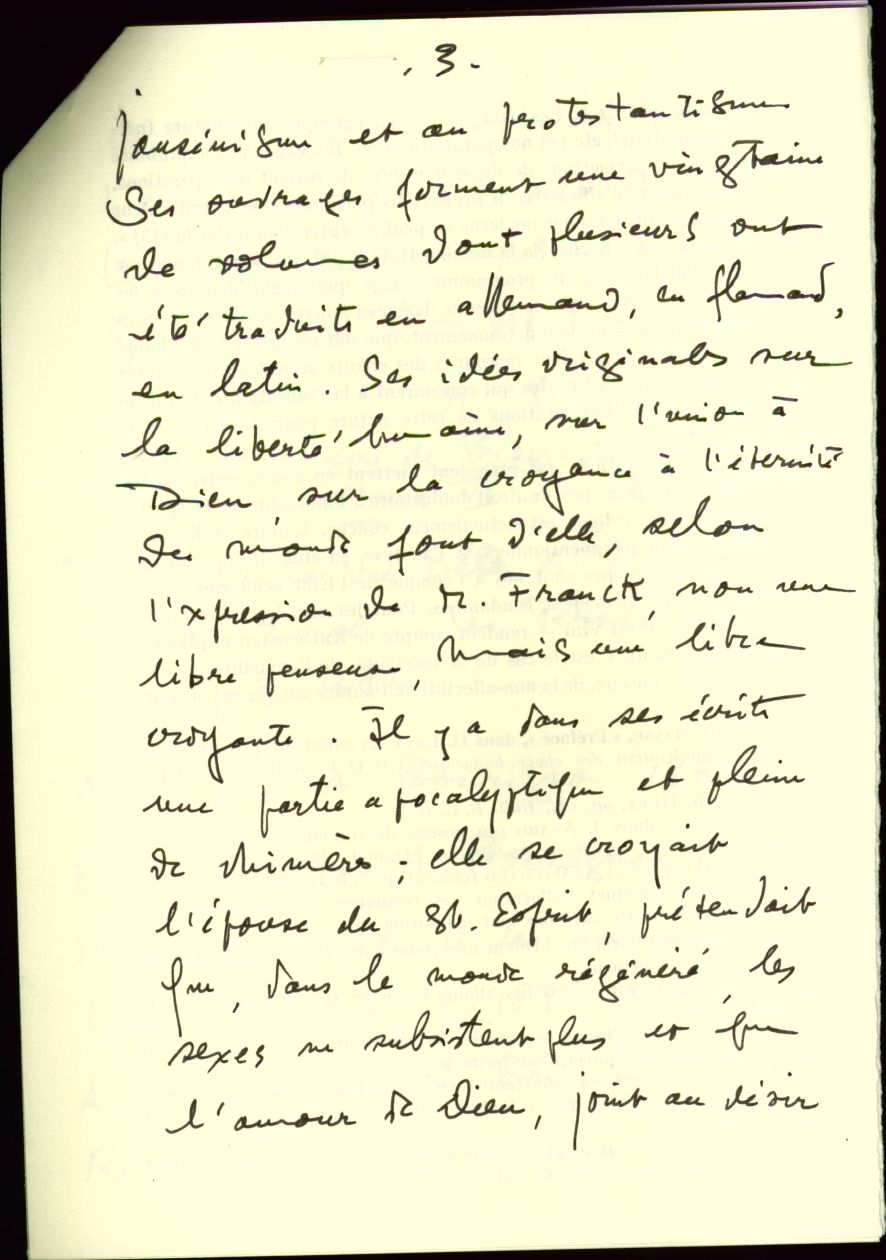 . 3 .
jansénisme et au protestantisme
Ses ouvrages forment une vingtaine
de volumes dont plusieurs ont
été traduits en allemand, en flamand,
en latin. Ses idées originales sur
la liberté humaine, sur l'union à
Dieu sur la croyance à l'éternité
du monde font d'elle, selon
l'xpression de M. Franck, non une
libre penseuse, mais une libre
croyante. Il y a dans ses écrits
une partie apocalyptique et pleine
de chimères ; elle se croyait
l'épouse du St. Esprit, prétendait
que, dans le monde régénéré, les
sexes ne subsistent plus et que
l'amour de Dieu, joint au désir